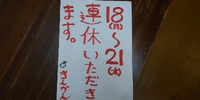 18(月)〜
21(木)
連休いただき
ます。
きんかん